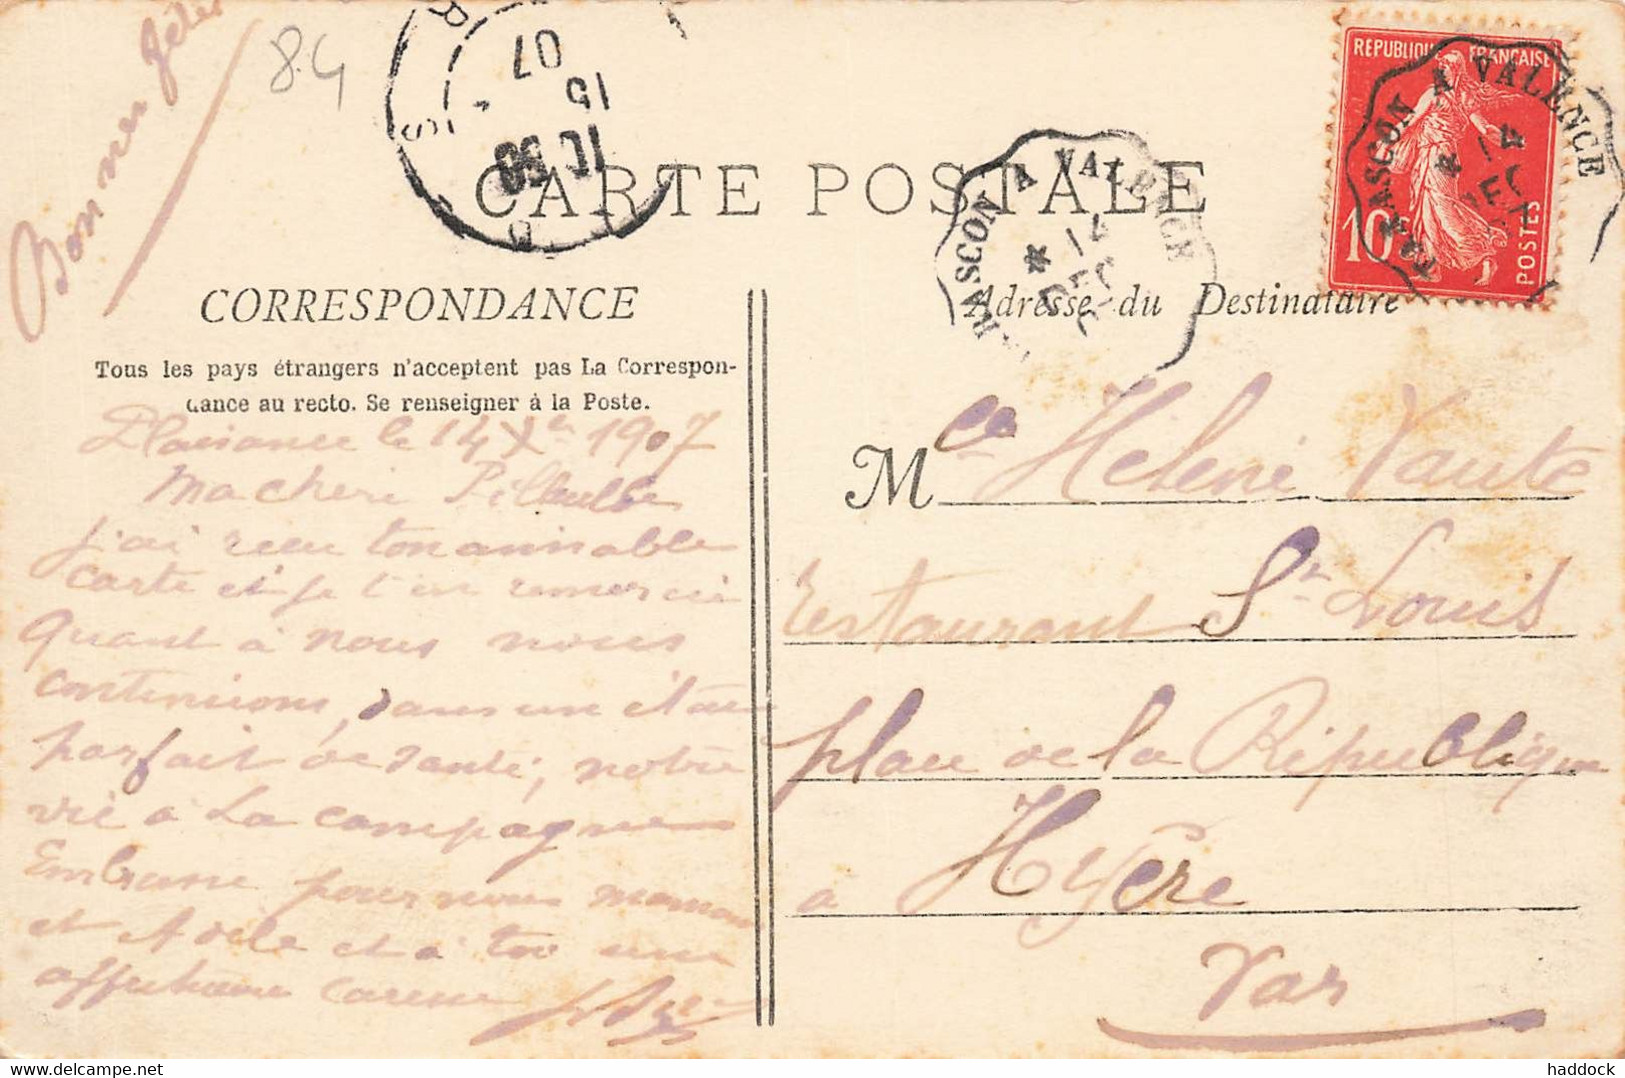 Bonnes fêtes
84
07
15
10 30
CARTE POSTALE
TARASCON A VALENCE
* 14
DEC
07
REPUBLIQUE FRANÇAISE
10c
POSTES
TARASCON A VALENCE
* 14
DEC
CORRESPONDANCE
Tous les pays étrangers n'acceptent pas La Correspon-
dance au recto. Se renseigner à la Poste.
Plaisance le 14 Xbre 1907
Ma cheri
j'ai recu ton aimable
carte et je t'en remercie
quant à nous nous
continuons, dans un état
parfait de santé, notre
vie à La campagne
Embrasse pour nous maman
et Adèle et à toi une
affectueuse caresse
Adresse du Destinataire
Melle Hélène Vaute
Restaurant St Louis
place de la République
à Hyère
Var
delcampe.net
haddock